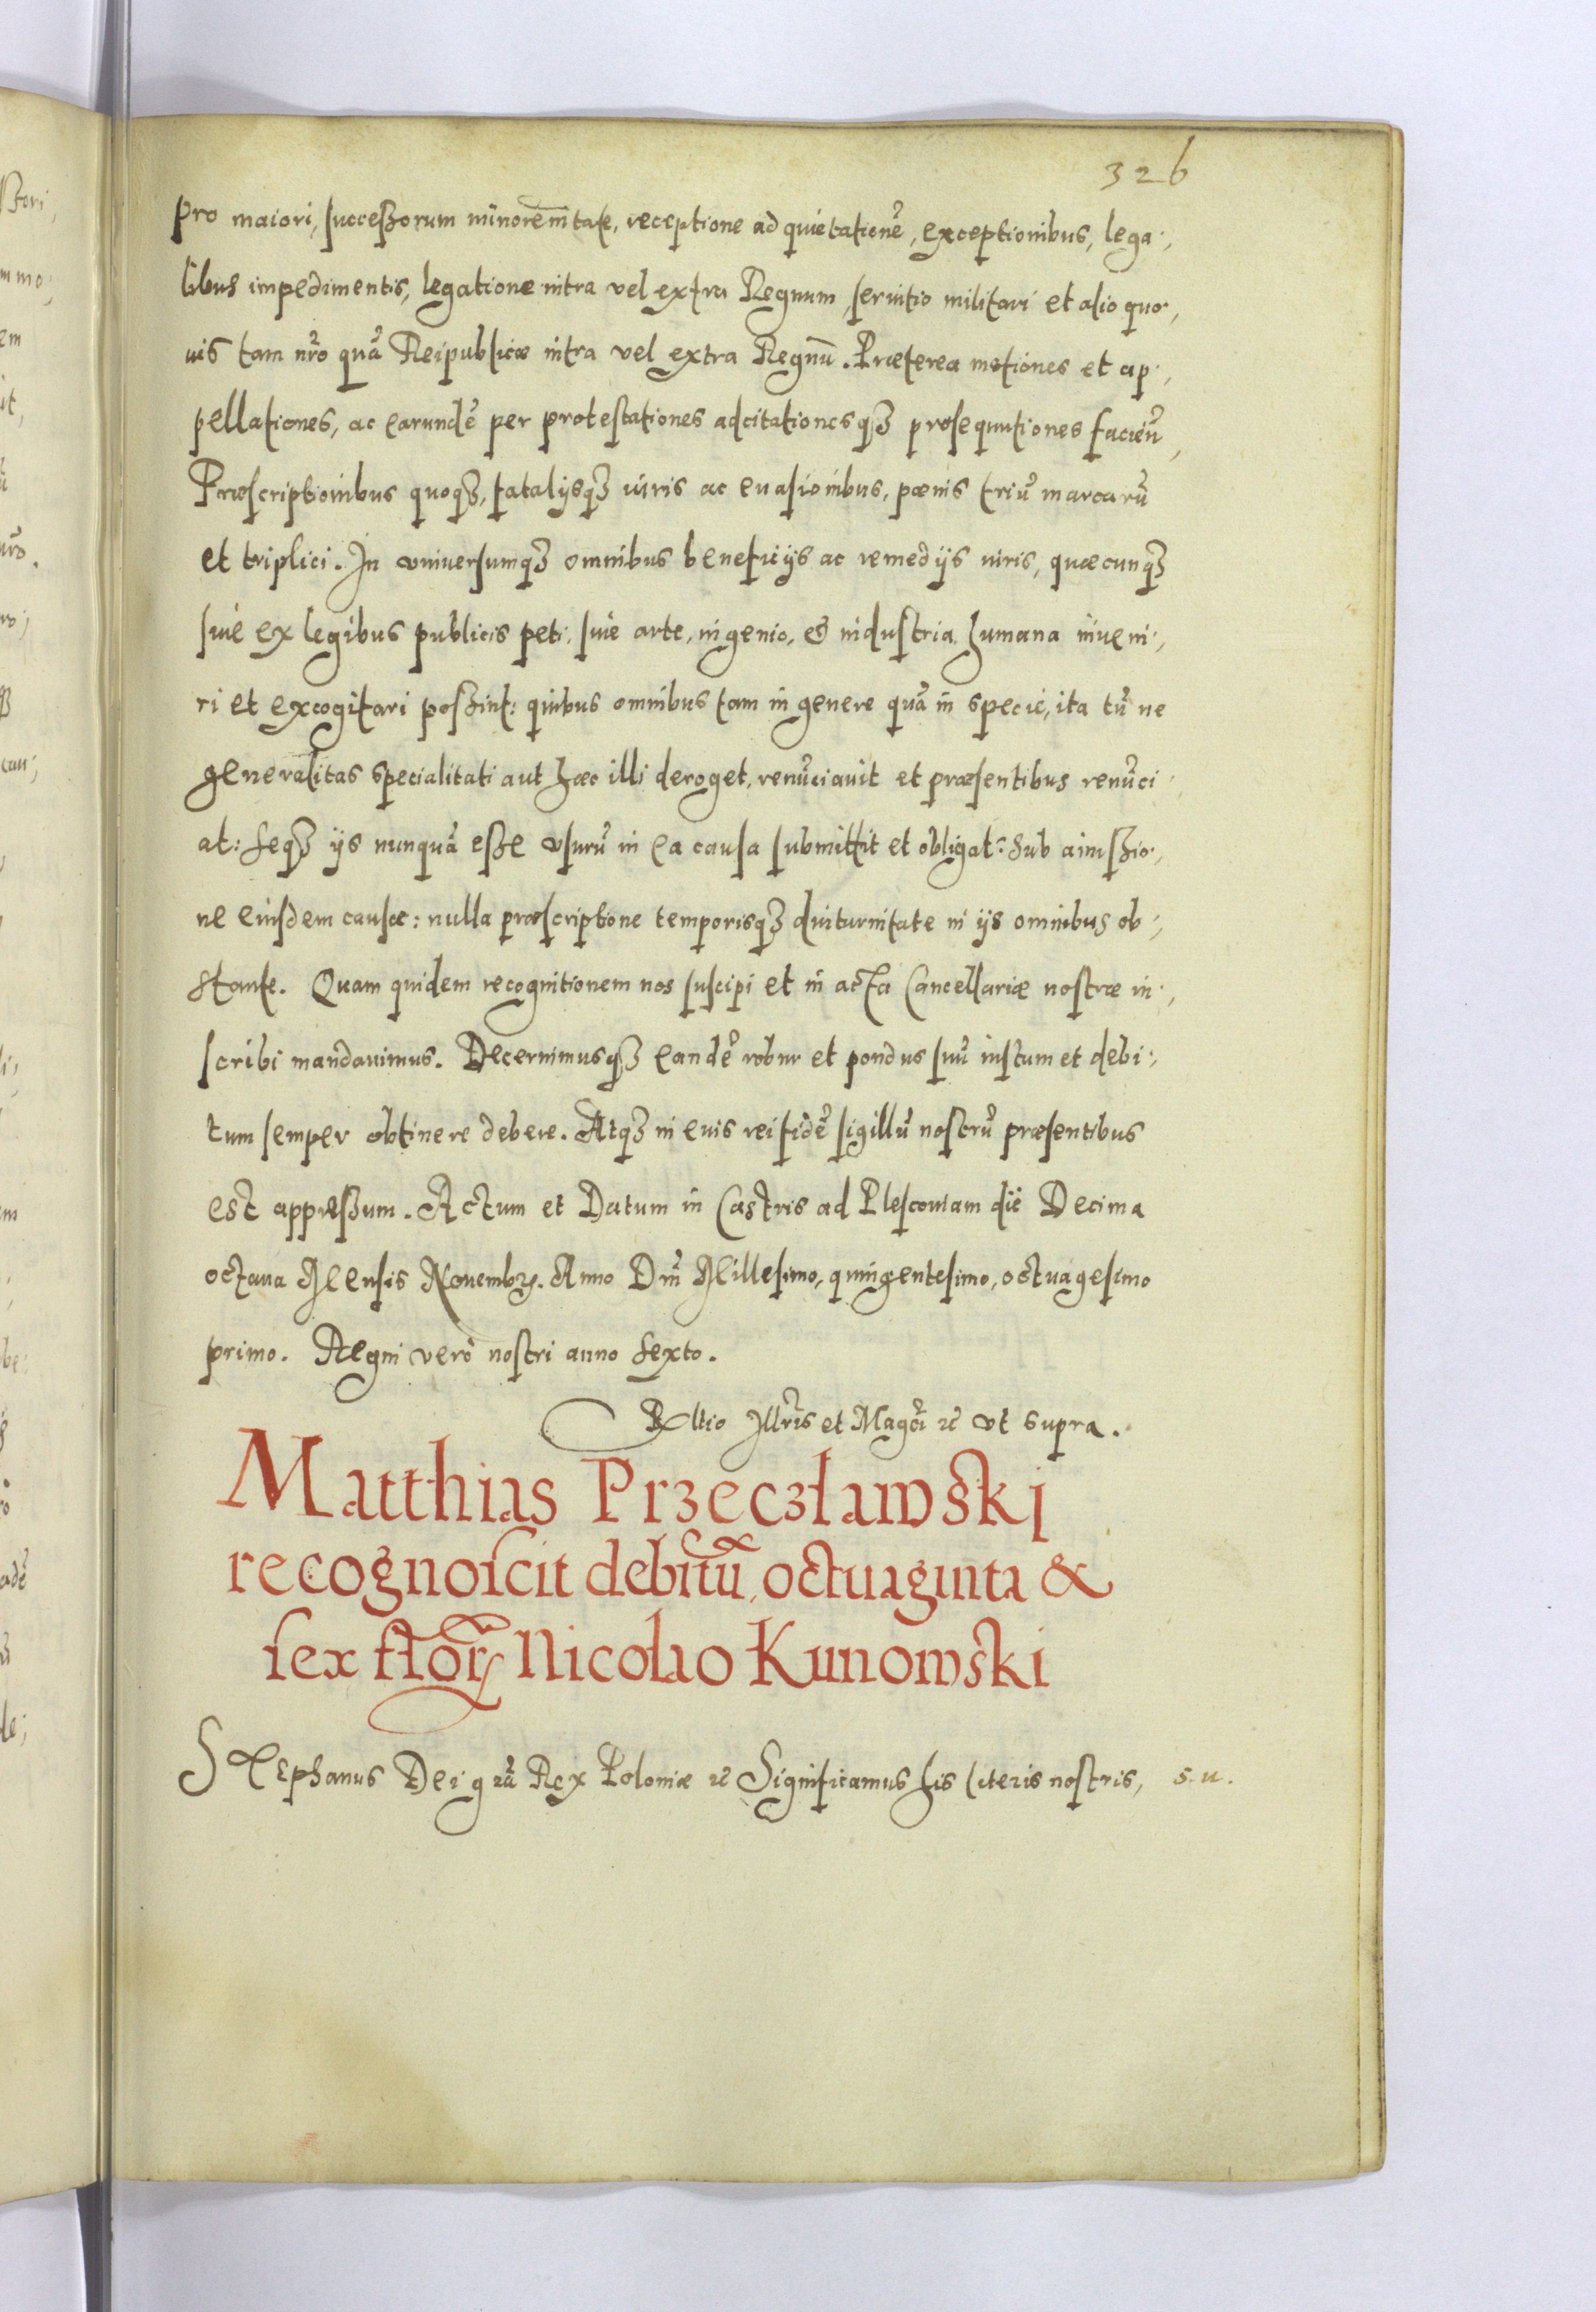 326
pro maiori, successorum minorennitate, receptione ad quietationē, exceptionibus, lega-
libus impedimentis, legatione intra vel extra Regnum, seruitio militari et alio quo-
uis tam nr̃o quã Reipublicæ intra vel extra Regnũ. Præterea motiones et ap-
pellationes, ac earundẽ per protestationes adcitationesq3 prosequutiones facieñ,
Præscriptionibus quoq3, fatalijsq3 iuris ac euasionibus, pœnis triũ marcarũ
et triplici. In vniuersumq3 omnibus beneficijs ac remedijs iuris, quæcunq3
siue ex legibus publicis peti, siue arte, ingenio, & industria humana inueni-
ri et excogitari possint: quibus omnibus tam in genere quã in specie, ita tñ ne
generalitas specialitati aut hæc illi deroget, renũciauit et præsentibus renũci
at: seq3 ijs nunquã esse vsurũ in ea causa submittit et obligat: sub amissio-
ne eiusdem causæ: nulla præscriptione temporisq3 diuturnitate in ijs omnibus ob-
stante. Quam quidem recognitionem nos suscipi et in acta Cancellariæ nostræ in-
scribi mandauimus. Decernimusq3 eandẽ robur et pondus suũ iustum et debi-
tum semper obtinere debere. Atq3 in euis rei fidẽ sigillũ nostrũ præsentibus
est appressum. Actum et Datum in Castris ad Plescouiam die Decima
octaua Mensis Nouembr. Anno Dñi Millesimo, quingentesimo, octuagesimo
primo. Regni vero nostri anno sexto.
Rltio Illr̃is et Magci ꝛc vt supra.
Matthias Przeczławski
recognoscit debitũ octuaginta &
sex flor̃ Nicolao Kunowski
Stephanus Dei gr̃a Rex Poloniæ ꝛc Significamus his literis nostris, s. u.